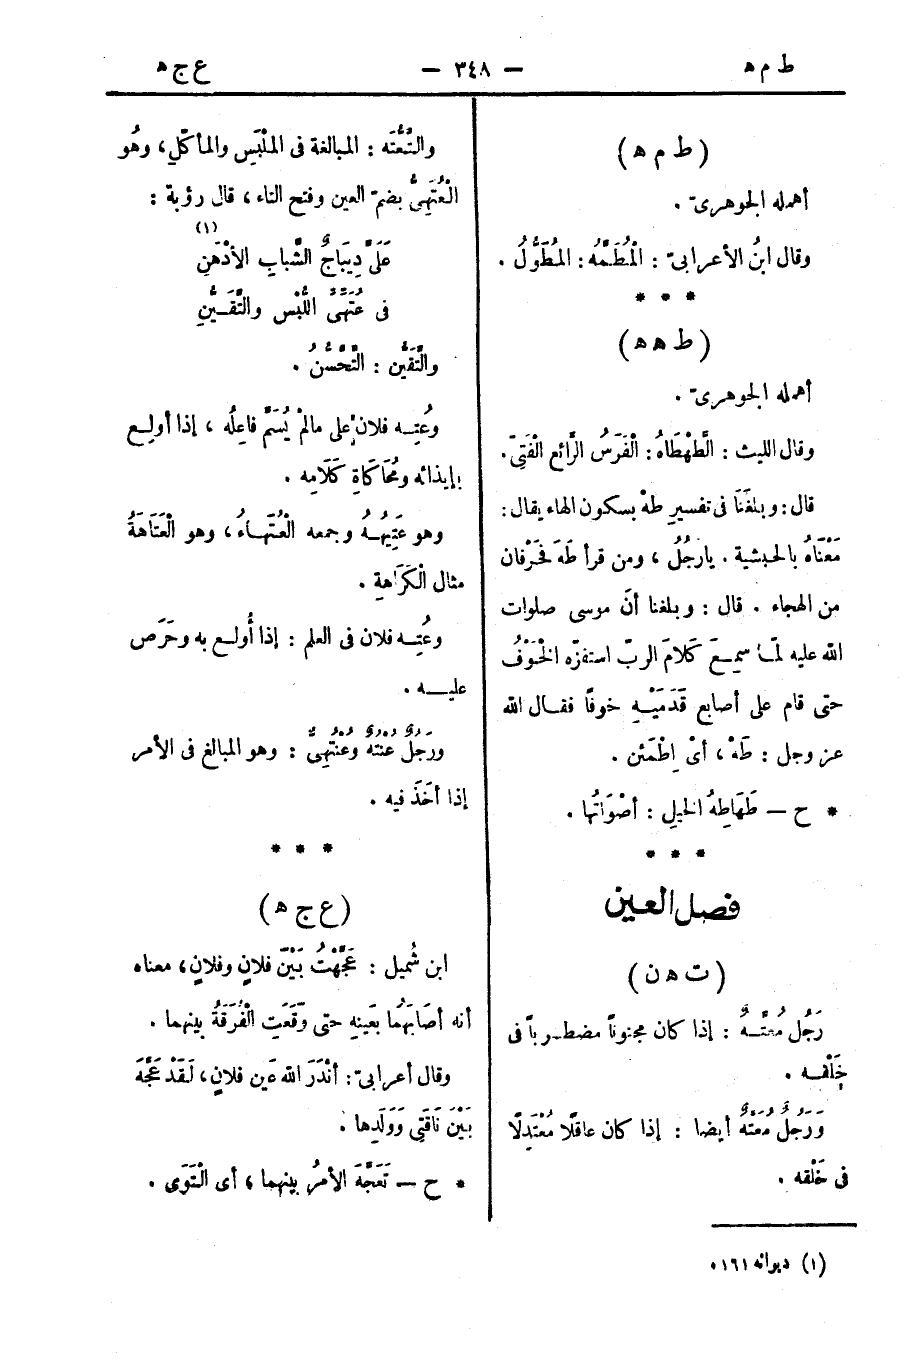 ط م ه
— ٣٤٨ —
ع ج ه
( ط م ه )
أهمله الجوهرىّ .
وقال ابنُ الأعرابىّ : الْمُطَمَّهُ : المُطَوَّلُ .
* * *
( ط ه ه )
أهمله الجوهرىّ .
وقال الليث : الطَّهْطَاهُ : الْفَرَسُ الرَّائع الْفَتِىّ .
قال : وبلغَنَا فى تفسيرِ طهْ بسكون الهاء يقال :
مَعْنَاهُ بالحبشية . يارَجُلُ ، ومن قرأ طَهَ فحَرْفان
من الهجاء . قال : وبلغنا أنّ موسى صلوات
الله عليه لمّا سمِعَ كَلامَ الربّ استفزّه الخَوْفُ
حتى قام على أصابع قَدَمَيْهِ خوفًا فقال الله
عز وجل : طَهْ ، أىْ اِطْمَئن .
* ح — طَهَاطِهُ الخيلِ : أصْوَاتُها .
* * *
فصل العين
( ت ه ن )
رَجُل مُعَتَّهٌ : إذا كان مجنوناً مضطرباً فى
خَلْقه .
وَرَجُلٌ مُعَتَّهٌ أيضا : إذا كان عاقلًا مُعْتَدِلًا
فى خَلْقه .
والتَّعَتُّه : المبالغة فى الملْبَسِ والمأكلِ ، وهُو
الْعُتَهِىُّ بضم العين وفتح التاء ، قال رؤبة :
عَلَىَّ دِيبَاجُ الشَّبابِ الأدْهَنِ (١)
فى عُتَهِىِّ اللُّبْسِ والتَّقَيُّنِ
والتَّقَيُّن : التَّحَسُّنُ .
وعُتِه فلانٌ على مالمْ يُسَمَّ فاعِلُه ، إذا أولِع
بإيذائه ومُحَاكَاةِ كَلَامِه .
وهو عَتِيهُهُ وجمعه الْعُتَهاءُ ، وهو الْعَتَاهَةُ
مثال الْكَرَاهةِ .
وعُتِه فلان فى العلم : إذا أُولع به وحَرَص
عليه .
ورَجُلٌ عُنْتُهٌ وعُنْتُهِىٌّ : وهو المبالغ فى الأمر
إذا أخَذَ فيه .
* * *
( ع ج ه )
ابن شُميل : عَجَّهْتُ بَيْنَ فلانٍ وفلانٍ ، معناه
أنه أصَابَهُما بعَينِهِ حتى وَقَعَتِ الْفُرَقَةُ بينهما .
وقال أعرابىّ : أنْدَرَ الله عَين فلانٍ ، لَقَدْ عَجَّهَ
بَيْنَ نَاقَتِى وَوَلَدِها .
* ح — تَعَجَّهَ الأمرُ بينهما ، أى الْتَوَى .
(١) ديوانه ١٦١ .